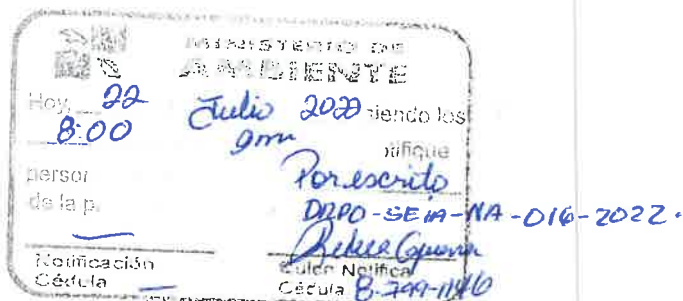 MINISTERIO DE
AMBIENTE
Hoy, 22 Julio 2022 siendo los
8:00 am notifique
persor Por escrito
de la p. DRPO-SEIA-NA-016-2022.
Notificación Quien Notifica
Cédula Cédula 8-799-1146